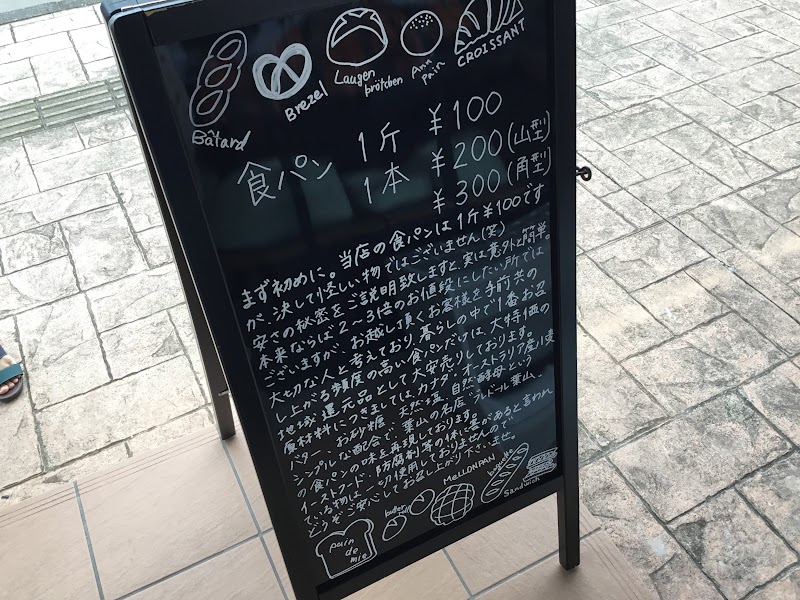 Bâtard
Brezel
Laugen
brötchen
Ann
pain
CROISSANT
食パン 1斤 ¥100
1本 ¥200(山型)
¥300(角型)
まず初めに。当店の食パンは1斤¥100です
が、決して怪しい物ではございません(笑)
安さの秘密をご説明致しますと、実は意外と簡単。
本来ならば2〜3倍のお値段にしたい所では
ございますが、お越し頂くお客様を手前共の
大切な人と考えており、暮らしの中で1番お召
し上がる頻度の高い食パンだけは、大特価の
地域還元品として大安売りしております。
原材料につきましては、カナダ、オーストラリア産小麦
バター、お砂糖、天然塩、自然酵母という
シンプルな配合で、葉山の名店"ラ・ドール葉山"
の食パンの味を再現しております。
イーストフード、防腐剤等の体に害があると言われ
ている物は、一切使用しておりませんので、
どうぞご安心してお召し上がり下さいませ。
pain
de
mie
butter
roll
MELLONPAN
baguette
Sandwich